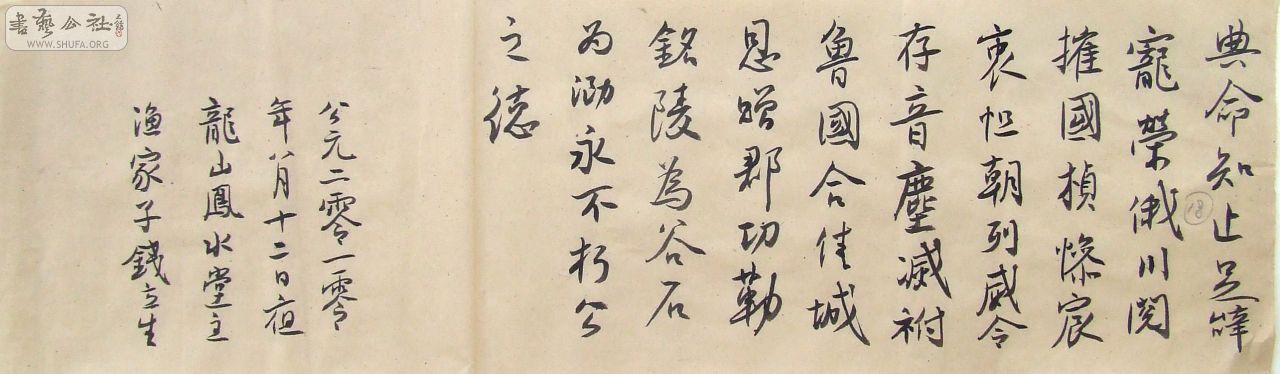 典命知止足辭
寵榮俄川閱
摧國楨慘宸
衷怛朝列威令
存音塵滅祔
魯國合佳城
恩贈郡功勒
銘陵為谷石
為泐永不朽公
之德
公元二零一零
年八月十二日夜
龍山鳳水堂主
漁家子錢立生
18
書藝公社
WWW.SHUFA.ORG